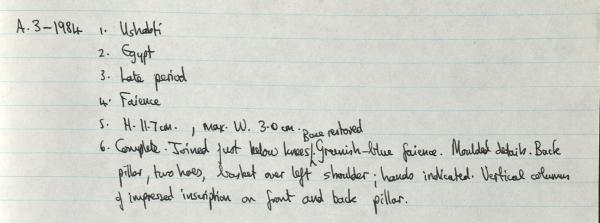 A.3-1984 1. Ushabti
2. Egypt
3. Late period
4. Faience
5. H. 11.7cm. , max. W. 3.0cm.
6. Complete. Joined just below knees. Base restored Greenish-blue faience. Moulded details. Back
pillar, two hoes, basket over left shoulder; hands indicated. Vertical column
of impressed inscription on front and back pillar.